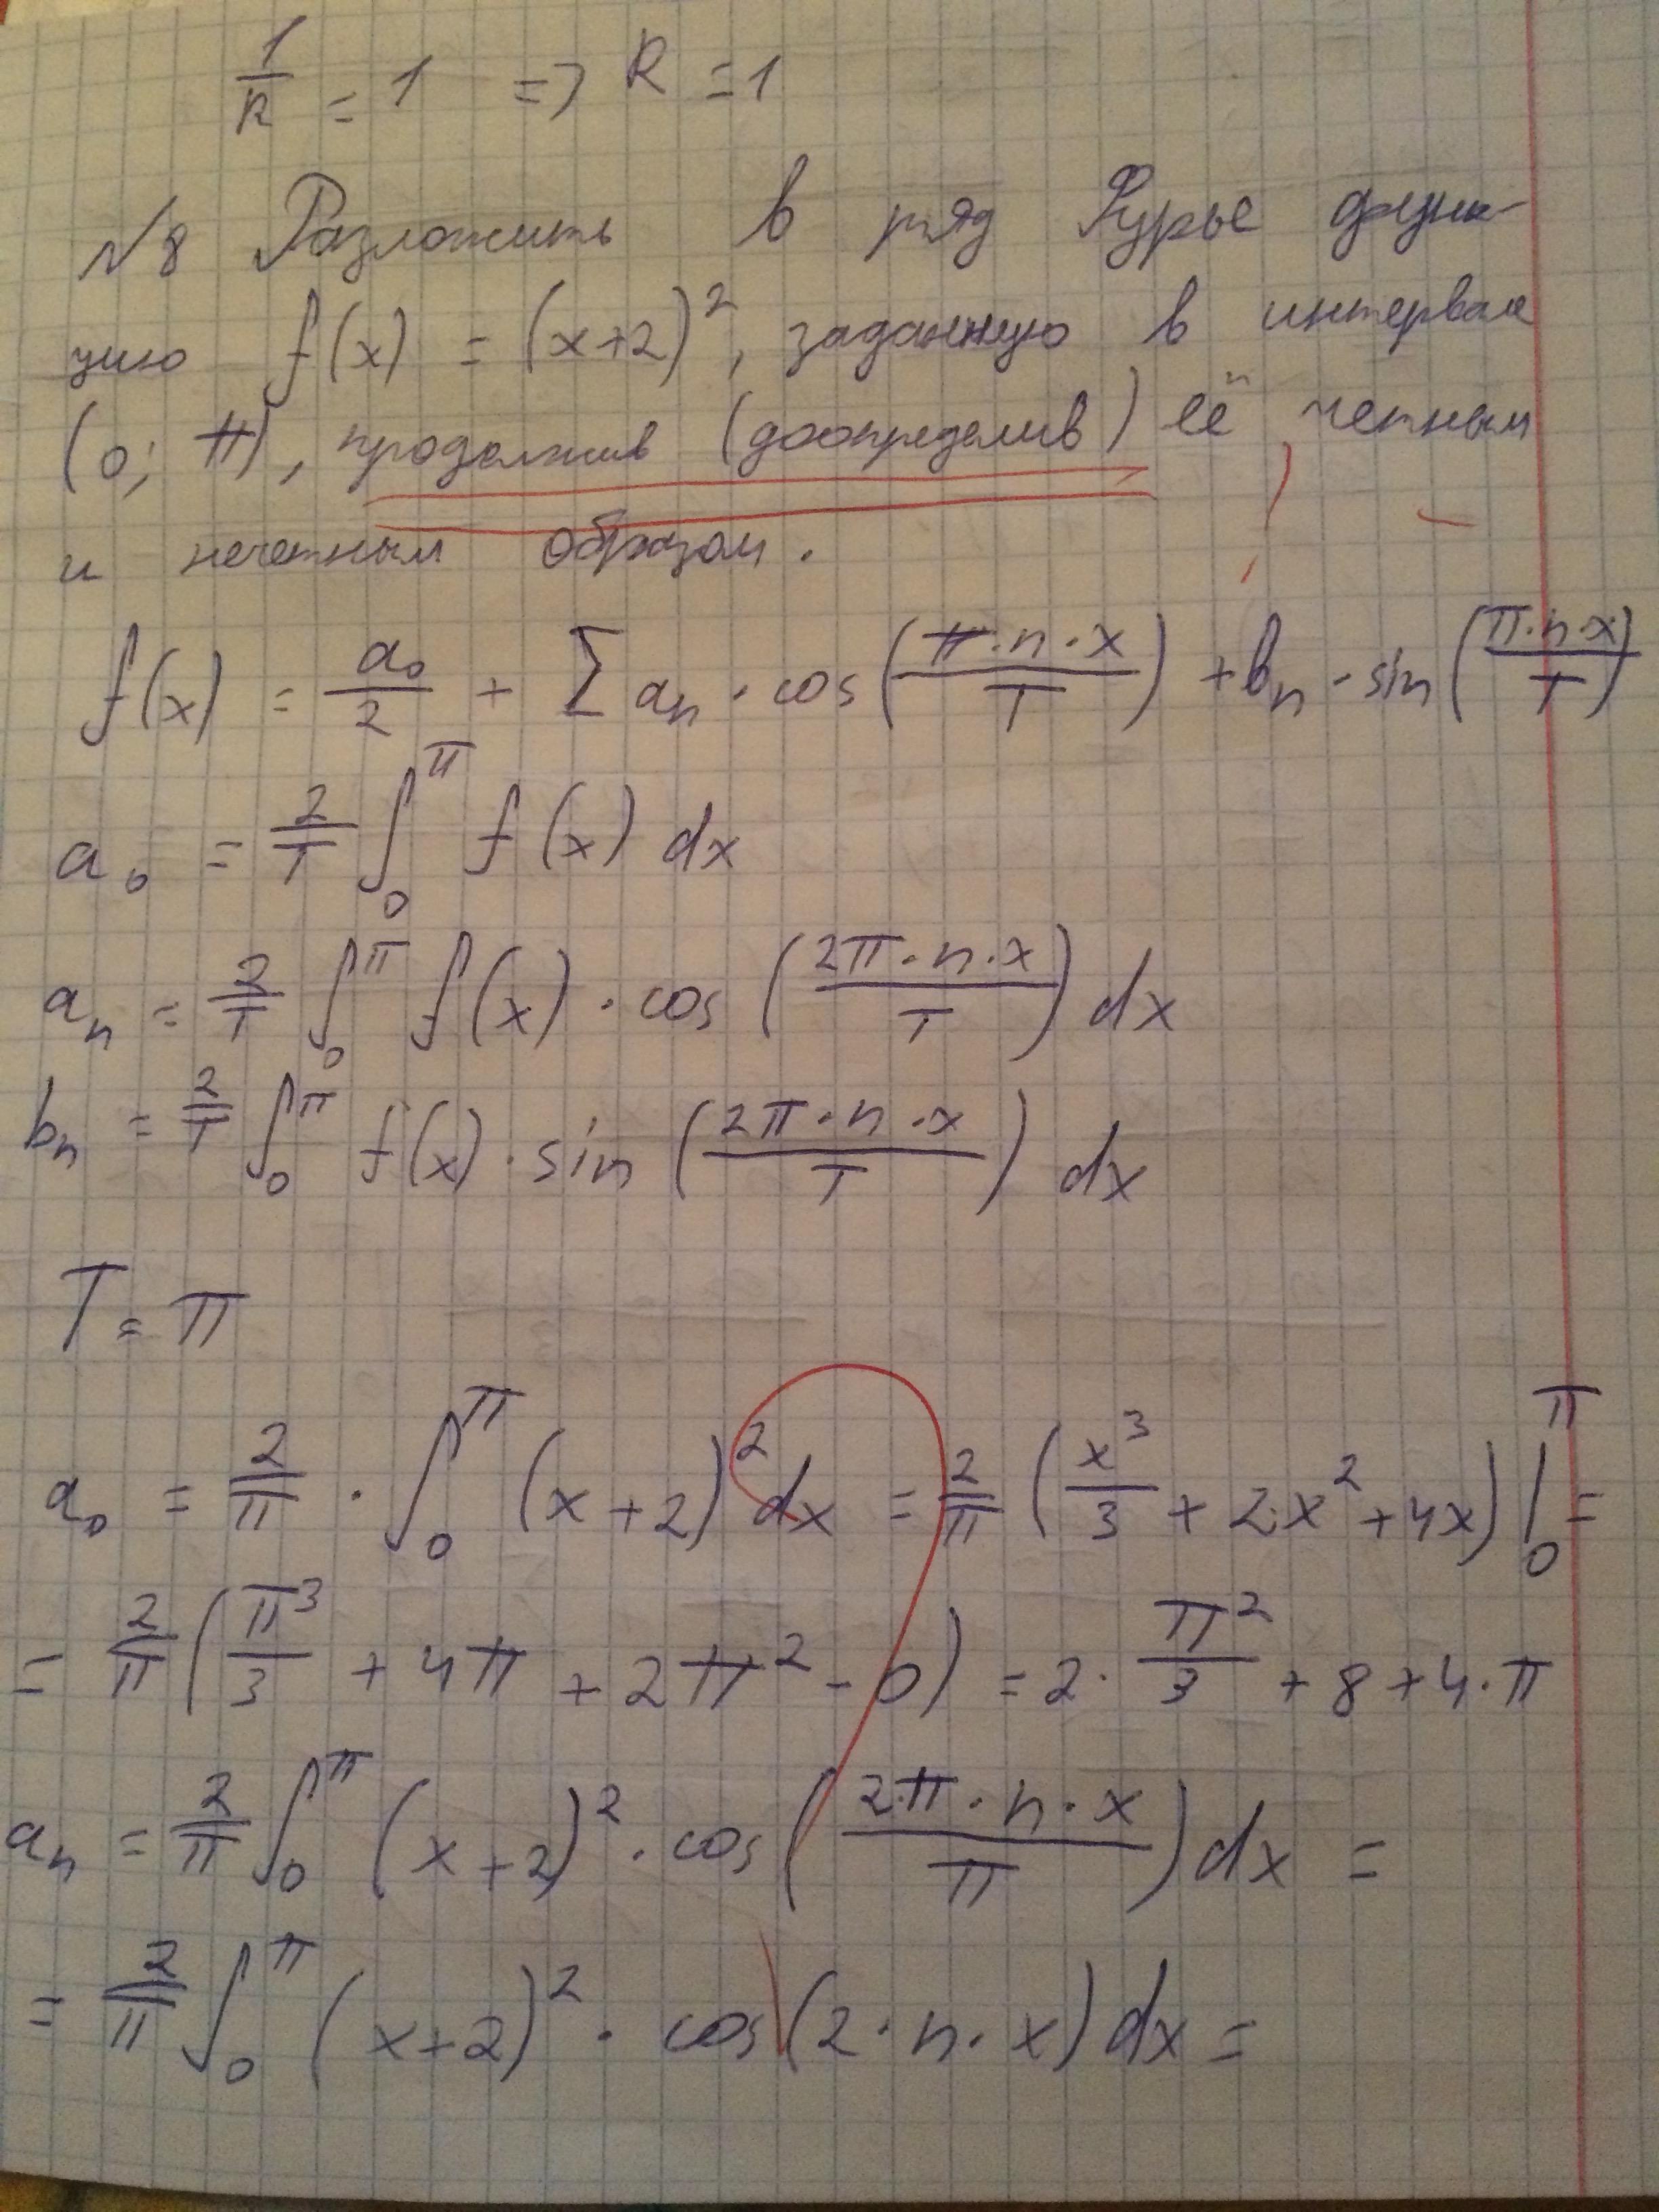 1/R = 1 => R = 1
№8 Разложить в ряд Фурье функ-
цию f(x) = (x+2)², заданную в интервале
(0; π), продолжив (доопределив) её четным
и нечетным образом.
f(x) = a₀/2 + Σ aₙ · cos(π·n·x/T) + bₙ · sin(π·n·x/T)
a₀ = 2/T ∫₀^π f(x) dx
aₙ = 2/T ∫₀^π f(x) · cos(2π·n·x/T) dx
bₙ = 2/T ∫₀^π f(x) · sin(2π·n·x/T) dx
T = π
a₀ = 2/π · ∫₀^π (x+2)² dx = 2/π (x³/3 + 2·x² + 4x) |₀^π =
= 2/π (π³/3 + 4π + 2π² - 0) = 2 · π²/3 + 8 + 4·π
aₙ = 2/π ∫₀^π (x+2)² · cos(2·π·n·x/π) dx =
= 2/π ∫₀^π (x+2)² · cos(2·n·x) dx =